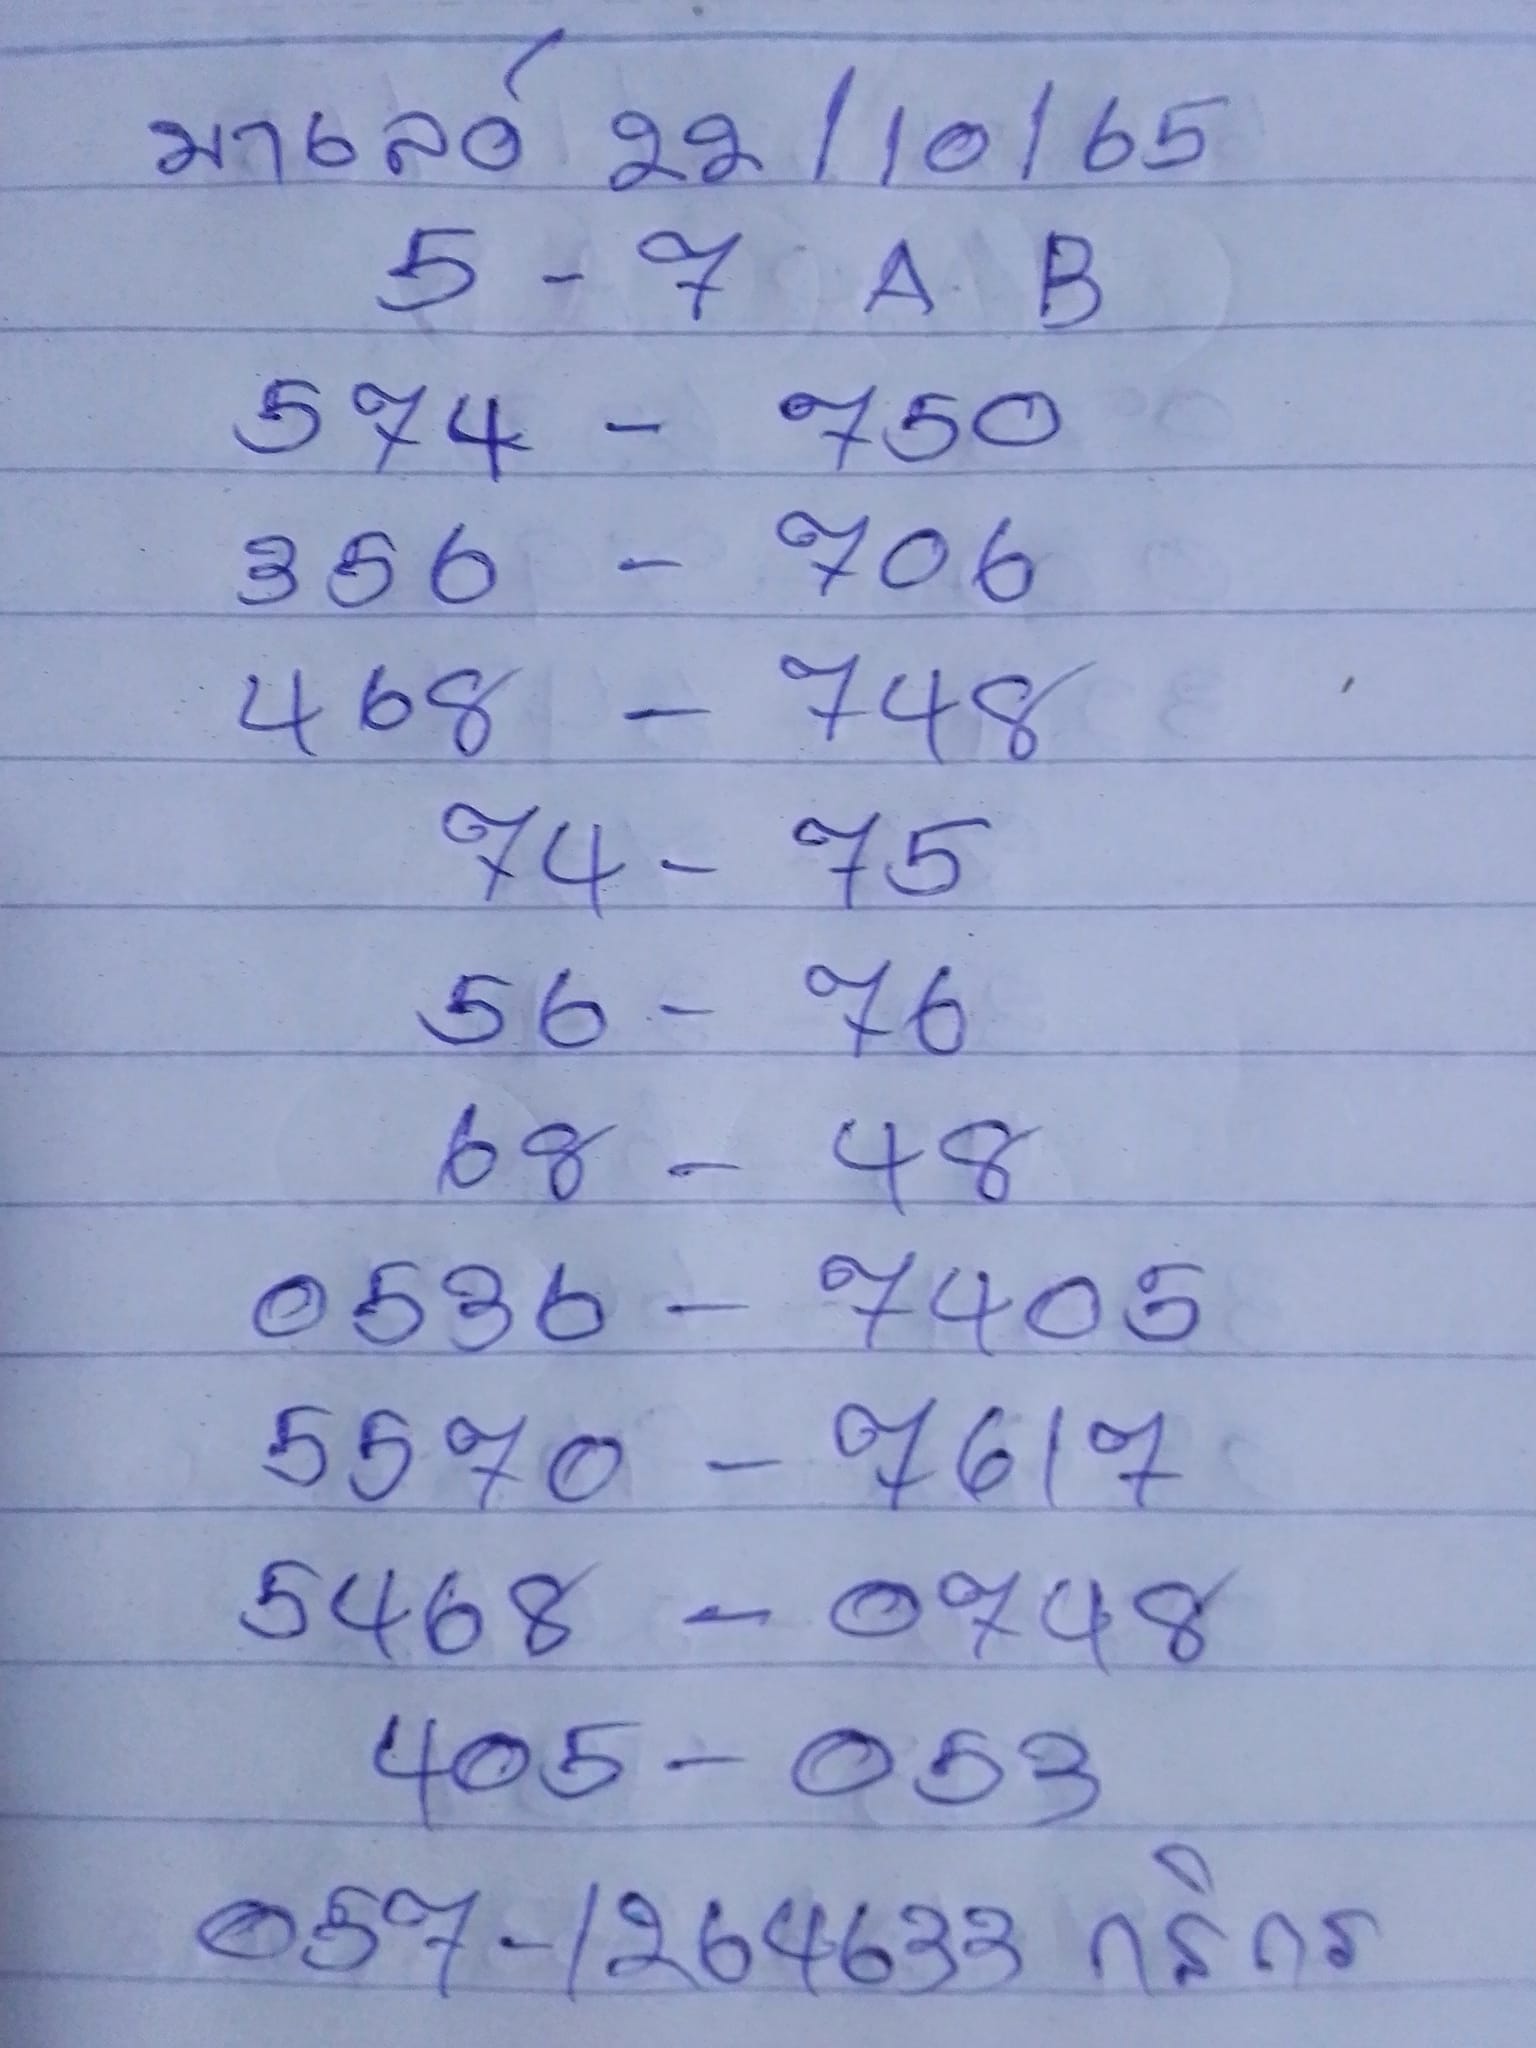 มาเลย์ 22/10/65
5 - 7 A B
574 - 750
356 - 706
468 - 748
74 - 75
56 - 76
68 - 48
0536 - 7405
5570 - 7617
5468 - 0748
405 - 053
057-1264633 กสิกร